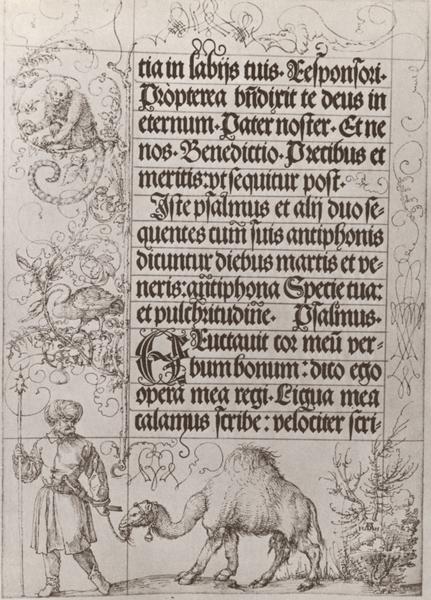 tia in labijs tuis. Responsori.
Propterea bn̄dixit te deus in
eternum. Pater noster. Et ne
nos. Benedictio. Precibus et
meritis: vt sequitur post.
Iste psalmus et alij duo se-
quentes cum̄ suis antiphonis
dicuntur diebus martis et ve-
neris: an̄tiphona Specie tua:
et pulchritudin̄e. Psalmus.
ERuctauit cor meū ver-
bum bonum: dico ego
opera mea regi. Ligua mea
calamus scribe: velociter scri-